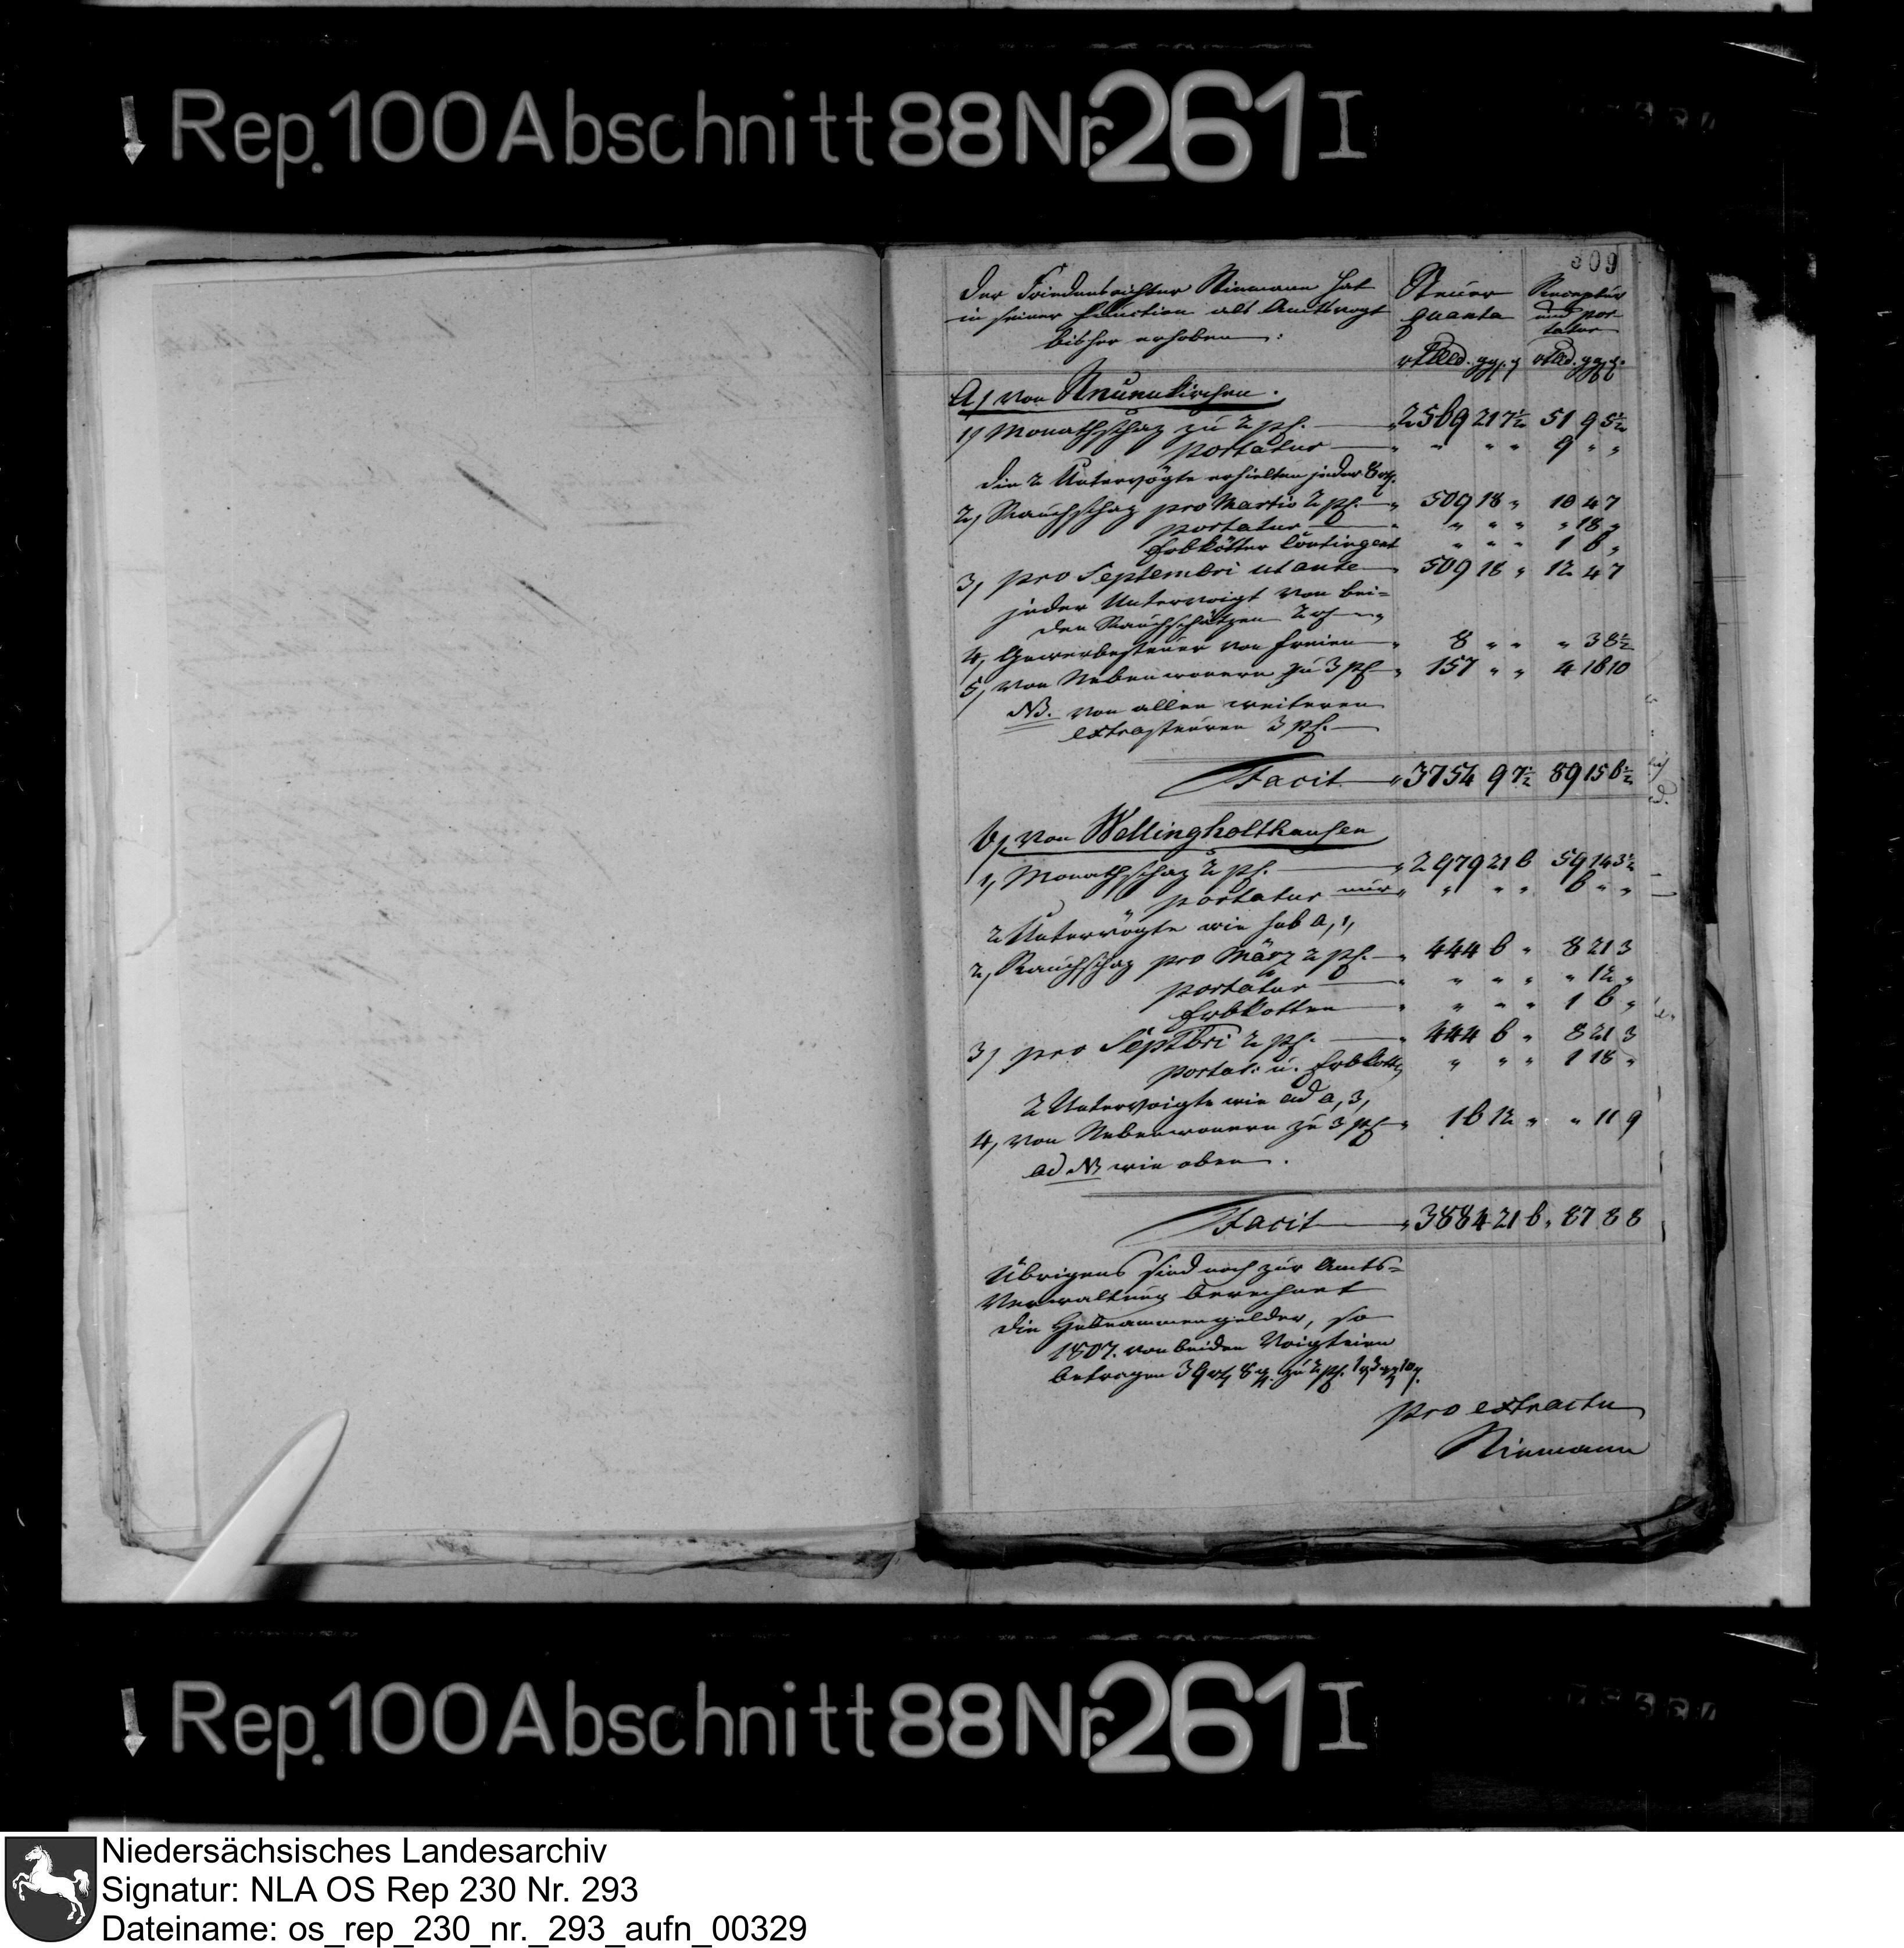 Rep. 100 Abschnitt 88 Nr. 261 I
309
Der Friedensrichter Niemann hat
in seiner Function als Amtsvogt
bisher erhoben:
Steuer
quanta
Receptur
und por-
tatur
rthlr. ggr. ₰ rthlr. ggr. ₰
a) von Neuenkirchen.
1) Monathschaz zu 2 pf. — „ 2569 21 7½ 51 9 5½
portatur — „ „ „ „ 9 „ „
die 2 Untervögte erhielten jeder 8 rth.
2, Rauchschaz pro Martio 2 pf. — „ 509 18 „ 10 4 7
portatur — „ „ „ „ „ 18 „
Erbkötter Contingent „ „ „ 1 6 „
3, pro Septembri ut ante — 509 18 „ 12 4 7
jeder Untervoigt von bei-
den Rauchschätzen 2 rth — „
4, Gewerbesteuer von Freien — „ 8 „ „ „ 3 8½
5, von Nebenwonern zu 3 pf — „ 157 „ „ 4 18 10
NB. von allen weiteren
extrasteuren 3 pf. —
Facit — „ 3754 9 7½ 89 15 6½
b, von Wellingholthausen
1, Monathschaz 2 pf. — „ 2979 21 6 59 14 3½
„ portatur nur „ „ „ „ 6 „ „
2 Untervögte wie sub a, 1,
2, Rauchschaz pro März 2 pf. — „ 444 6 „ 8 21 3
portatur — „ „ „ „ „ 12 „
Erbkotten — „ „ „ „ 1 6 „
3, pro Septbri 2 pf. — „ 444 6 „ 8 21 3
portat: u. Erbkott „ „ „ 1 18 „
2 Untervoigte wie ad a, 3,
4, von Nebenwonern zu 3 pf — „ 16 12 „ „ 11 9
ad NB wie oben.
Facit — „ 3884 21 6 „ 87 8 8
Übrigens sind noch zur Amts-
Verwaltung berechnet
die Hebammengelder, so
1807. von beiden Voigteien
betragen 39 rth 8 g. zu 2 pf.
pro extractu
Niemann
Rep. 100 Abschnitt 88 Nr. 261 I
Niedersächsisches Landesarchiv
Signatur: NLA OS Rep 230 Nr. 293
Dateiname: os_rep_230_nr._293_aufn_00329